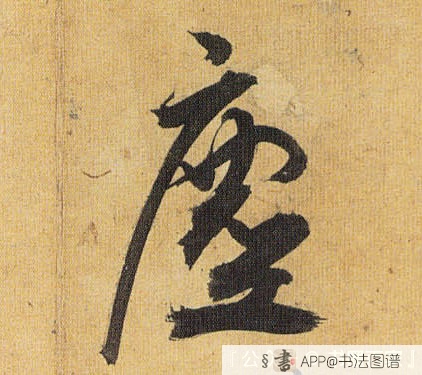 塵
§書 APP@书法图谱